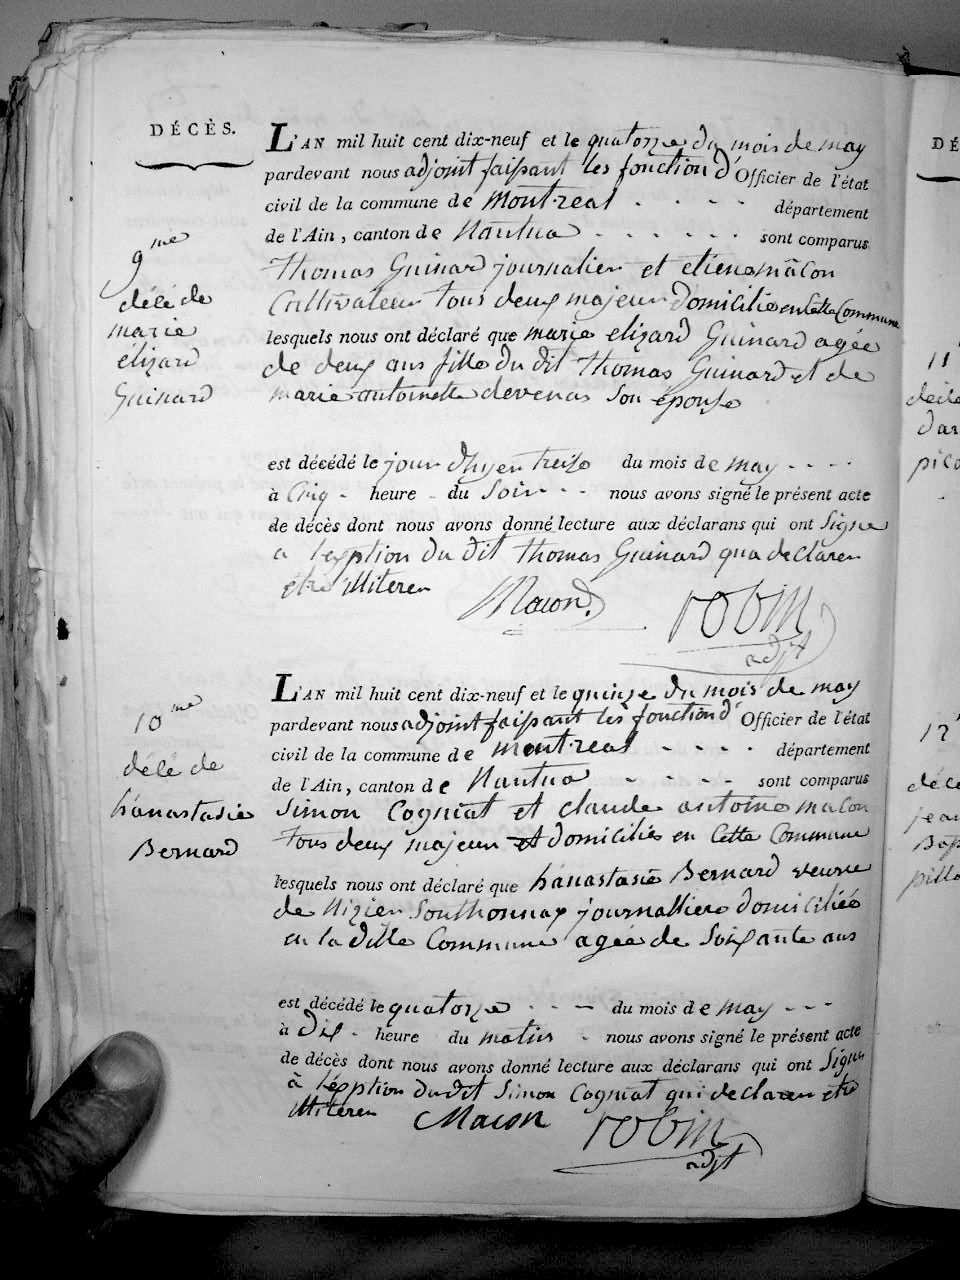 DÉCÈS.
9me
délé de
marie
elizard
Guinard
L'AN mil huit cent dix-neuf et le quatorze du mois de may
pardevant nous adjoint faisant les fonction d' Officier de l'état
civil de la commune de montreal - - - - département
de l'Ain, canton de Nantua - - - - - - sont comparus
Thomas Guinard journalier et etiene mâcon
Cultivateur tous deux majeur domicilié en Cette Commune
lesquels nous ont déclaré que marie elizard Guinard agée
de deux ans fille du dit Thomas Guinard et de
marie antoinette devenas son épouse
est décédé le jour dhyer treize du mois de may - - - -
à Cinq - heure - du Soir - - nous avons signé le présent acte
de décès dont nous avons donné lecture aux déclarans qui ont Signe
a l'exption du dit Thomas Guinard qua declarer
être illiteren
Macon
robin
adjt
10me
délé de
hanastasie
Bernard
L'AN mil huit cent dix-neuf et le quinze du mois de may
pardevant nous adjoint faisant les fonction d' Officier de l'état
civil de la commune de montreal - - - - département
de l'Ain, canton de Nantua - - - - - sont comparus
Simon Cogniat et claude antoine macon
tous deux majeur et domicilié en Cette Commune
lesquels nous ont déclaré que hanastasie Bernard veuve
de Nizier Southonnax journalliere domiciliée
en la ditte Commune agée de Soixante ans
est décédé le quatorze - - - du mois de may - - -
à dix - heure du matin - nous avons signé le présent acte
de décès dont nous avons donné lecture aux déclarans qui ont Signe
à l'exption du dit Simon Cogniat qui declaren etre
illiteren
Macon
robin
adjt
DÉ
11
déclé
dar
pico
12
décé
jean
Bap
pill